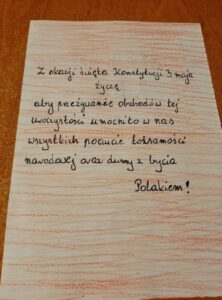 Z okazji święta Konstytucji 3 maja
życzę
aby przeżywanie obchodów tej
uroczystości umocniło w nas
wszystkich poczucie tożsamości
narodowej oraz dumy z bycia
Polakiem!